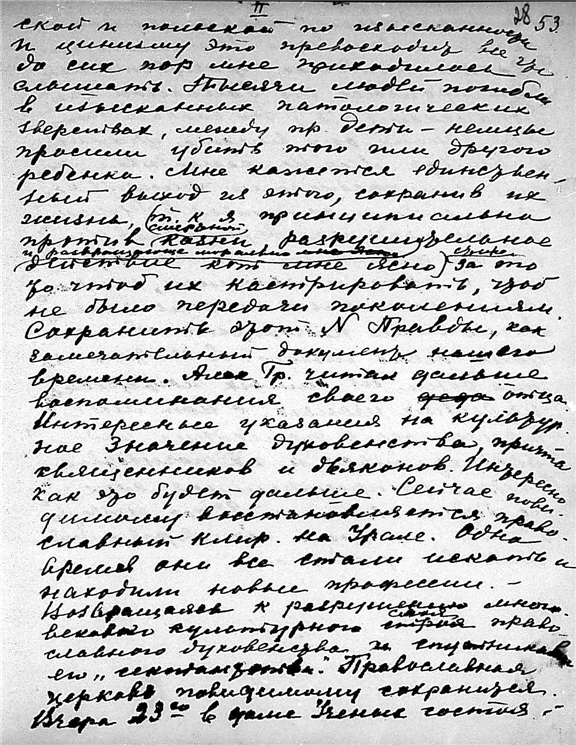 II
28 53.
ской и польской по изысканности
и цинизму это превосходит все что
до сих пор мне приходилось
слышать. Тысячи людей погибли
в изысканных патологических
зверствах, между пр. дети – немцы
просили убить того или другого
ребенка. Мне кажется единствен-
ный выход из этого, сохранив их
жизнь, т. к я принципиально
против смертной казни разрушительное
и развращающее морально
действие кот мне ясно) за то
за чтоб их кастрировать, чтоб
не было передачи поколениям.
Сохранить этот N Правды, как
замечательный документ нашего
времени. Алек Гр. читал дальше
воспоминания своего деда отца.
Интересные указания на культур.
ное значение духовенства, причта
священников и дьяконов. Интересно
как это будет дальше. Сейчас пови-
димому восстановляется право-
славный клир. на Урале. Одно
время они все стали искать и
находили новые профессии. –
Возвращаясь к разрушению много-
векового культурного слоя строя право-
славного духовенства и спутников
его „сектантства“. Православная
церковь повидимому сохранится.
Вчера 23го в доме Ученых состоя –